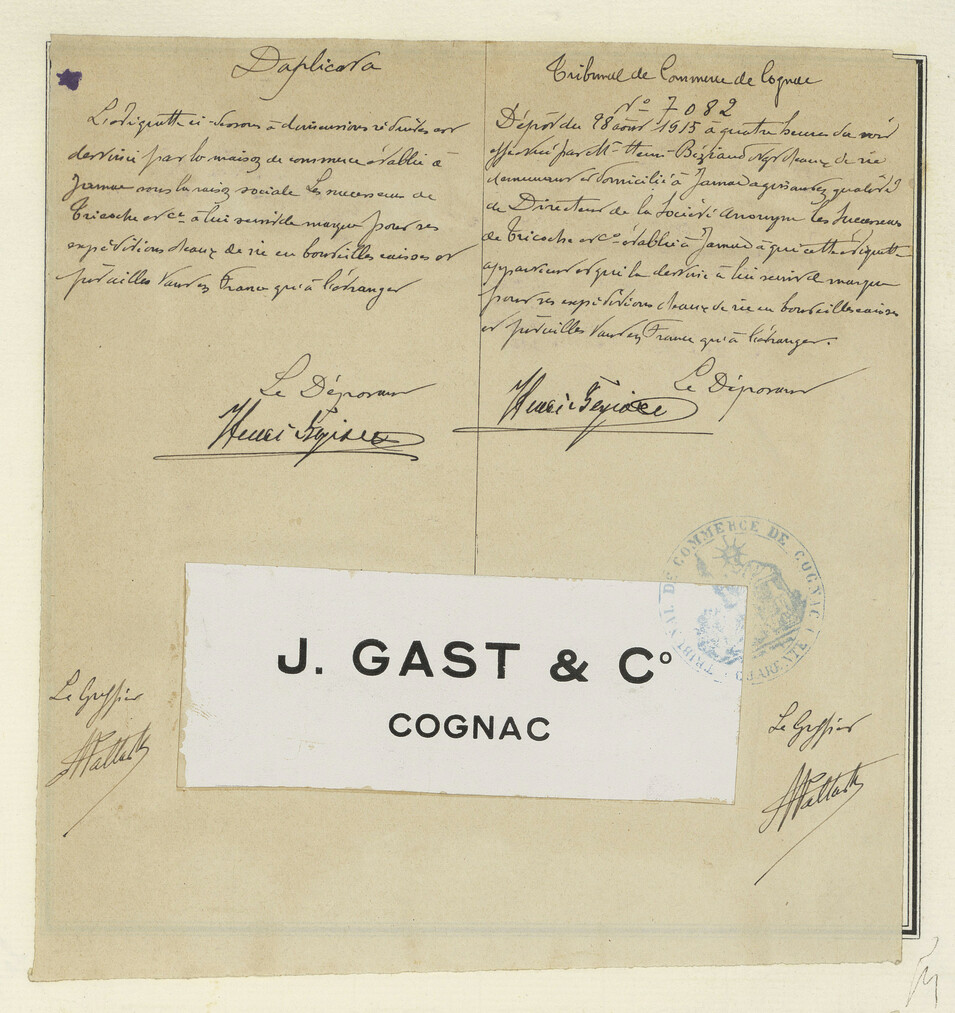 Duplicata
L'étiquette ci-dessous à dimensions réduites est
destinée par la maison de commerce établie à
Jarnac sous la raison sociale Les successeurs de
Tricoche et Cie à lui servir de marque pour ses
expéditions d'eaux de vie en bouteilles caisses et
futailles tant en France qu'à l'étranger
Le Déposant
Tribunal de Commerce de Cognac
No 7082
Dépôt du 28 août 1915 à quatre heures du soir
effectué par Mr Henri
demeurant et domicilié à Jarnac agissant en qualité
de Directeur de la Société anonyme les Successeurs
de Tricoche et Co établie à Jarnac à qui cette étiquette
appartient et qui la destine à lui servir de marque
pour ses expéditions d'eaux de vie en bouteilles caisses
et futailles tant en France qu'à l'étranger.
Le Déposant
J. GAST & Co
COGNAC
TRIBUNAL DE COMMERCE DE COGNAC (CHARENTE)
Le Greffier
Le Greffier